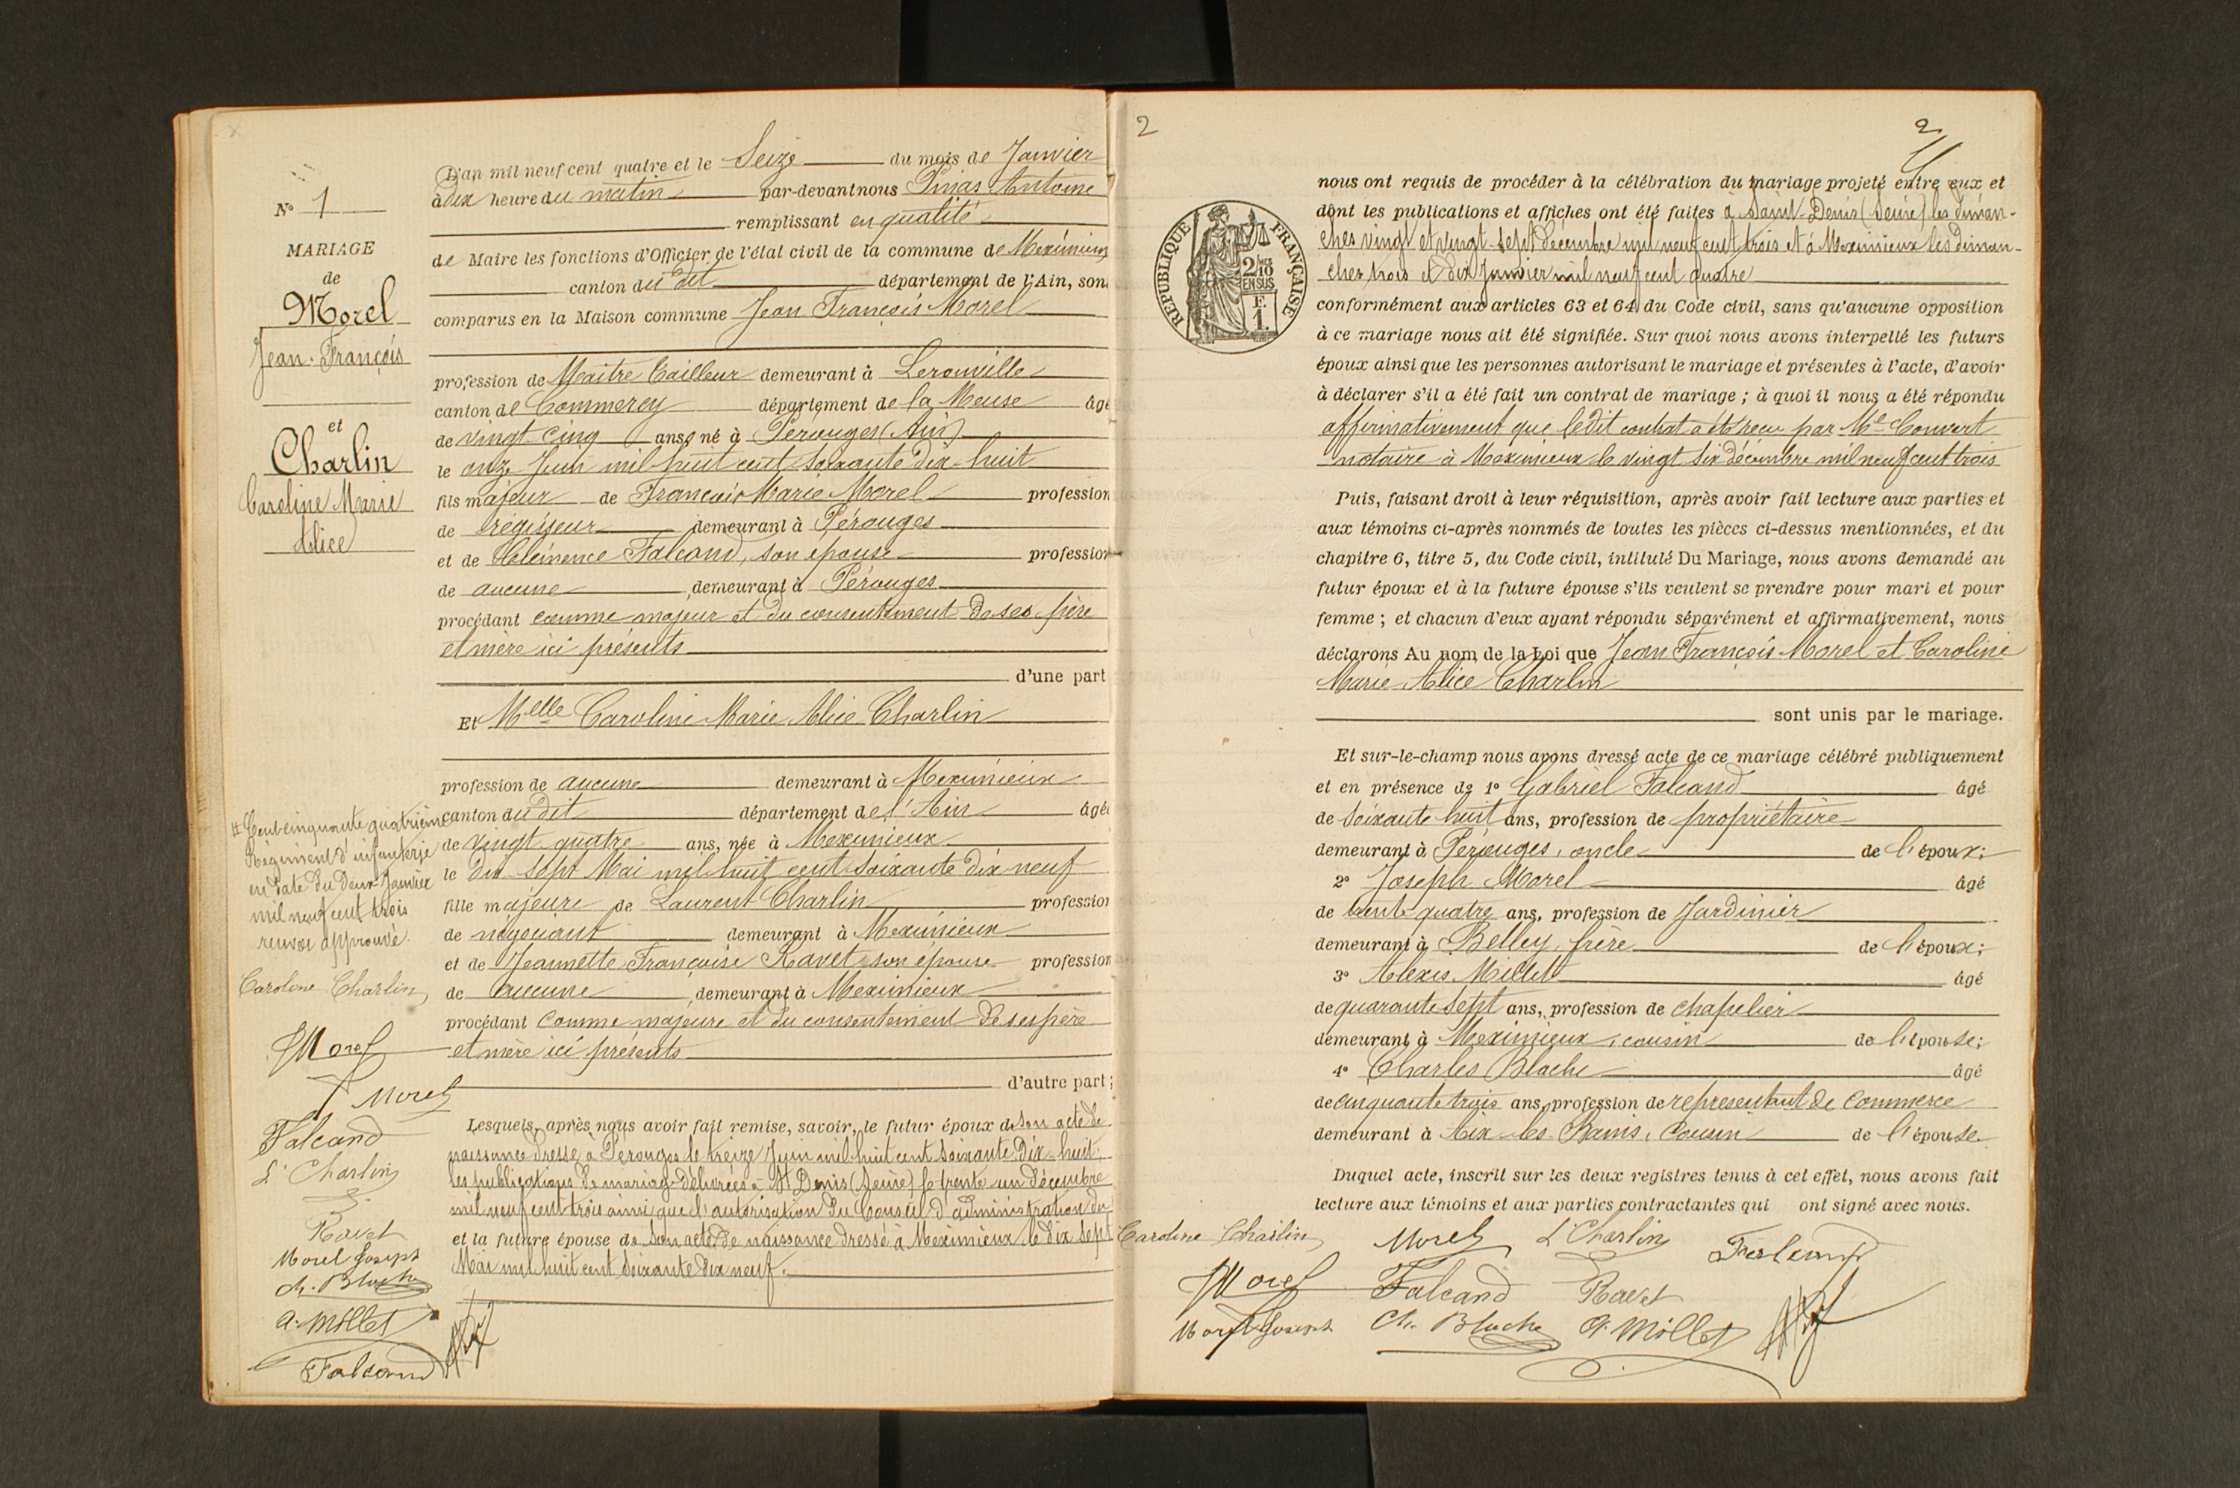 N° 1
MARIAGE
de
Morel
Jean-François
et
Charlin
Caroline Marie
Alice
L'an mil neuf cent quatre et le Seize du mois de Janvier
à dix heure du matin par-devant nous Pinas Antoine
remplissant en qualité
de Maire les fonctions d'Officier de l'état civil de la commune de Meximieux
canton du dit département de l'Ain, son
comparus en la Maison commune Jean François Morel
profession de Maitre tailleur demeurant à Lerouville
canton de Commercy département de la Meuse âgé
de vingt cinq ans, né à Pérouges (Ain)
le onze Juin mil huit cent soixante dix-huit
fils majeur de François Marie Morel profession
de régisseur demeurant à Pérouges
et de Clémence Falcand, son épouse profession
de aucune demeurant à Pérouges
procédant comme majeur et du consentement de ses père
et mère ici présents
d'une part
Et Melle Caroline Marie Alice Charlin
profession de aucune demeurant à Meximieux
canton du dit département de l'Ain âgée
de vingt quatre ans, née à Meximieux
le dix sept Mai mil huit cent soixante dix neuf
fille majeure de Laurent Charlin profession
de négociant demeurant à Meximieux
et de Jeannette Françoise Ravet son épouse profession
de aucune demeurant à Meximieux
procédant comme majeure et du consentement de ses père
et mère ici présents
d'autre part;
Lesquels, après nous avoir fait remise, savoir, le futur époux de son acte de
naissance dressé à Pérouges le treize Juin mil huit cent soixante dix-huit,
les publications de mariage délivrées à St Denis (Seine) le trente un décembre
mil neuf cent trois ainsi que l'autorisation du Conseil d'administration du
et la future épouse de son acte de naissance dressé à Meximieux le dix sept
Mai mil huit cent soixante dix neuf.
Cent cinquante quatrième
Régiment d'infanterie
en date du deux Janvier
mil neuf cent trois
renvoi approuvé.
Caroline Charlin
JMorel
Morel
Falcand
L' Charlin
Ravet
Morel Joseph
Ch. Bluche
A. Millet
Falcand
2
2
RÉPUBLIQUE FRANÇAISE
2/10 EN SUS
F.
1.
nous ont requis de procéder à la célébration du mariage projeté entre eux et
dont les publications et affiches ont été faites à Saint-Denis (Seine) les diman-
ches vingt et vingt-sept décembre mil neuf cent trois et à Meximieux les diman-
ches trois et dix Janvier mil neuf cent quatre
conformément aux articles 63 et 64 du Code civil, sans qu'aucune opposition
à ce mariage nous ait été signifiée. Sur quoi nous avons interpellé les futurs
époux ainsi que les personnes autorisant le mariage et présentes à l'acte, d'avoir
à déclarer s'il a été fait un contrat de mariage ; à quoi il nous a été répondu
affirmativement que le dit contrat a été reçu par Me Convert
notaire à Meximieux le vingt six décembre mil neuf cent trois
Puis, faisant droit à leur réquisition, après avoir fait lecture aux parties et
aux témoins ci-après nommés de toutes les pièces ci-dessus mentionnées, et du
chapitre 6, titre 5, du Code civil, intitulé Du Mariage, nous avons demandé au
futur époux et à la future épouse s'ils veulent se prendre pour mari et pour
femme ; et chacun d'eux ayant répondu séparément et affirmativement, nous
déclarons Au nom de la Loi que Jean François Morel et Caroline
Marie Alice Charlin
sont unis par le mariage.
Et sur-le-champ nous avons dressé acte de ce mariage célébré publiquement
et en présence de 1° Gabriel Falcand âgé
de soixante huit ans, profession de propriétaire
demeurant à Pérouges, oncle de l'époux;
2° Joseph Morel âgé
de trente quatre ans, profession de Jardinier
demeurant à Belley, frère de l'époux;
3° Alexis Millet âgé
de quarante sept ans, profession de chapelier
demeurant à Meximieux, cousin de l'épouse;
4° Charles Bluche âgé
de cinquante trois ans, profession de représentant de commerce
demeurant à Aix-les-Bains, cousin de l'épouse.
Duquel acte, inscrit sur les deux registres tenus à cet effet, nous avons fait
lecture aux témoins et aux parties contractantes qui ont signé avec nous.
Caroline Charlin Morel L' Charlin Falcand
JMorel Falcand Ravet
Morel Joseph Ch. Bluche A. Millet